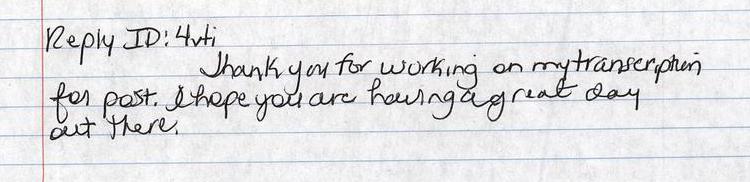 Reply ID: 4vti
Thank you for working on my transcription
for post. I hope you are having a great day
out there.